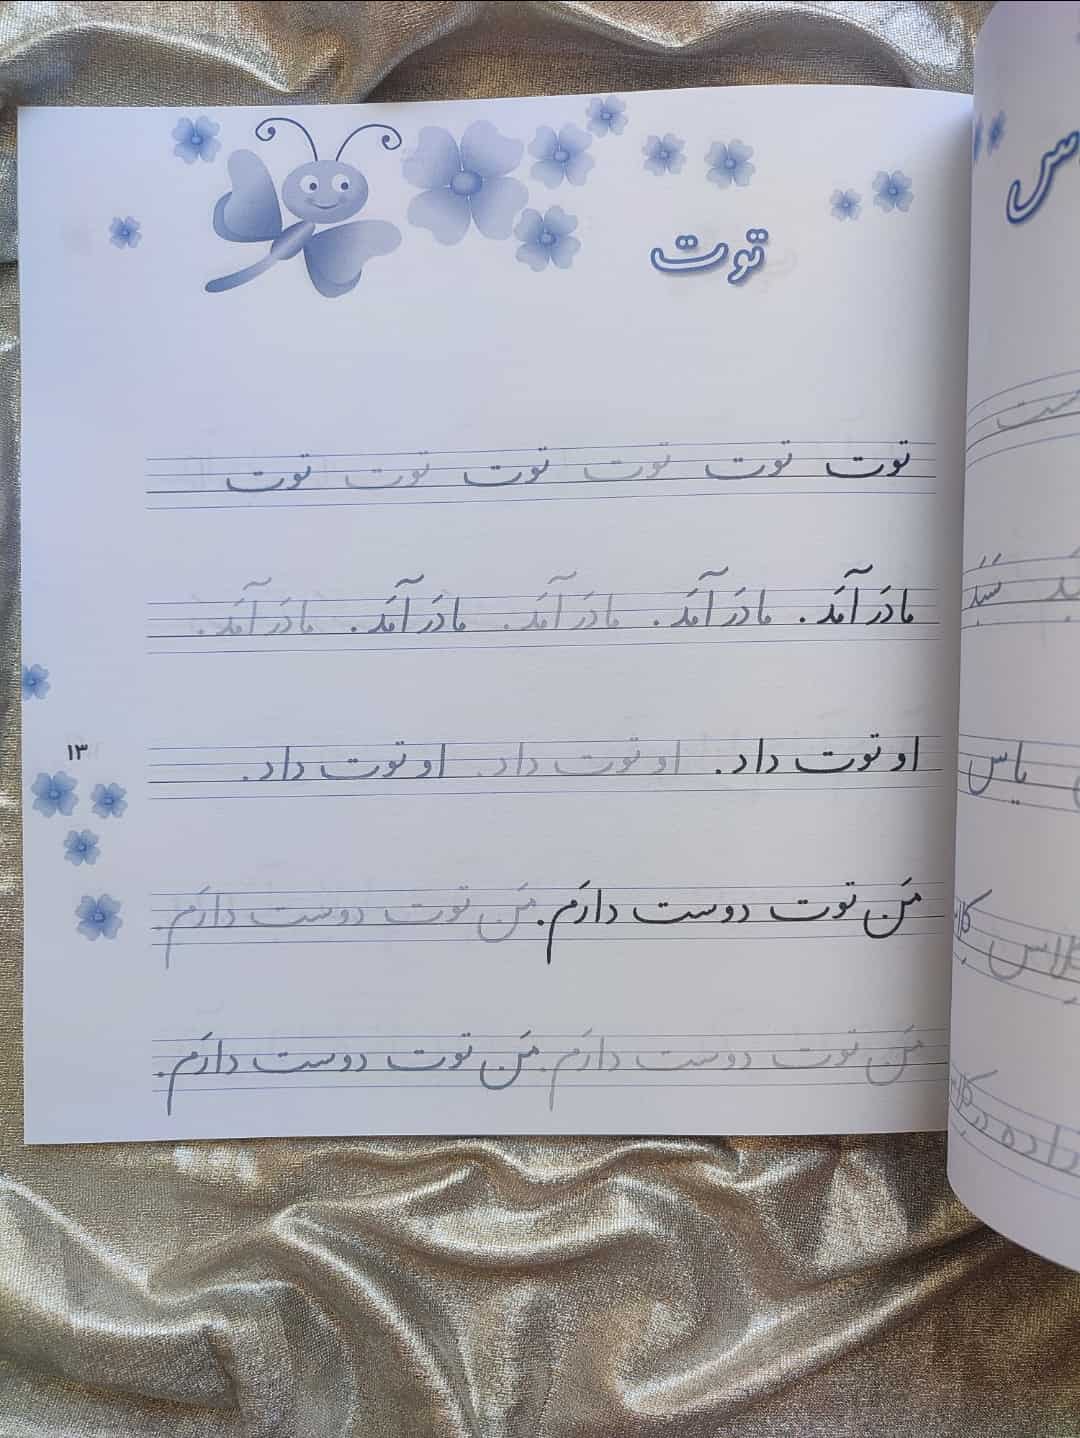 توت
توت توت توت توت توت توت
مادَر آمَد. مادَر آمَد. مادَر آمَد. مادَر آمَد. مادَر آمَد.
او توت داد. او توت داد. او توت داد.
۱۳
مَن توت دوست دارَم. مَن توت دوست دارَم.
مَن توت دوست دارَم. مَن توت دوست دارَم.
یاس